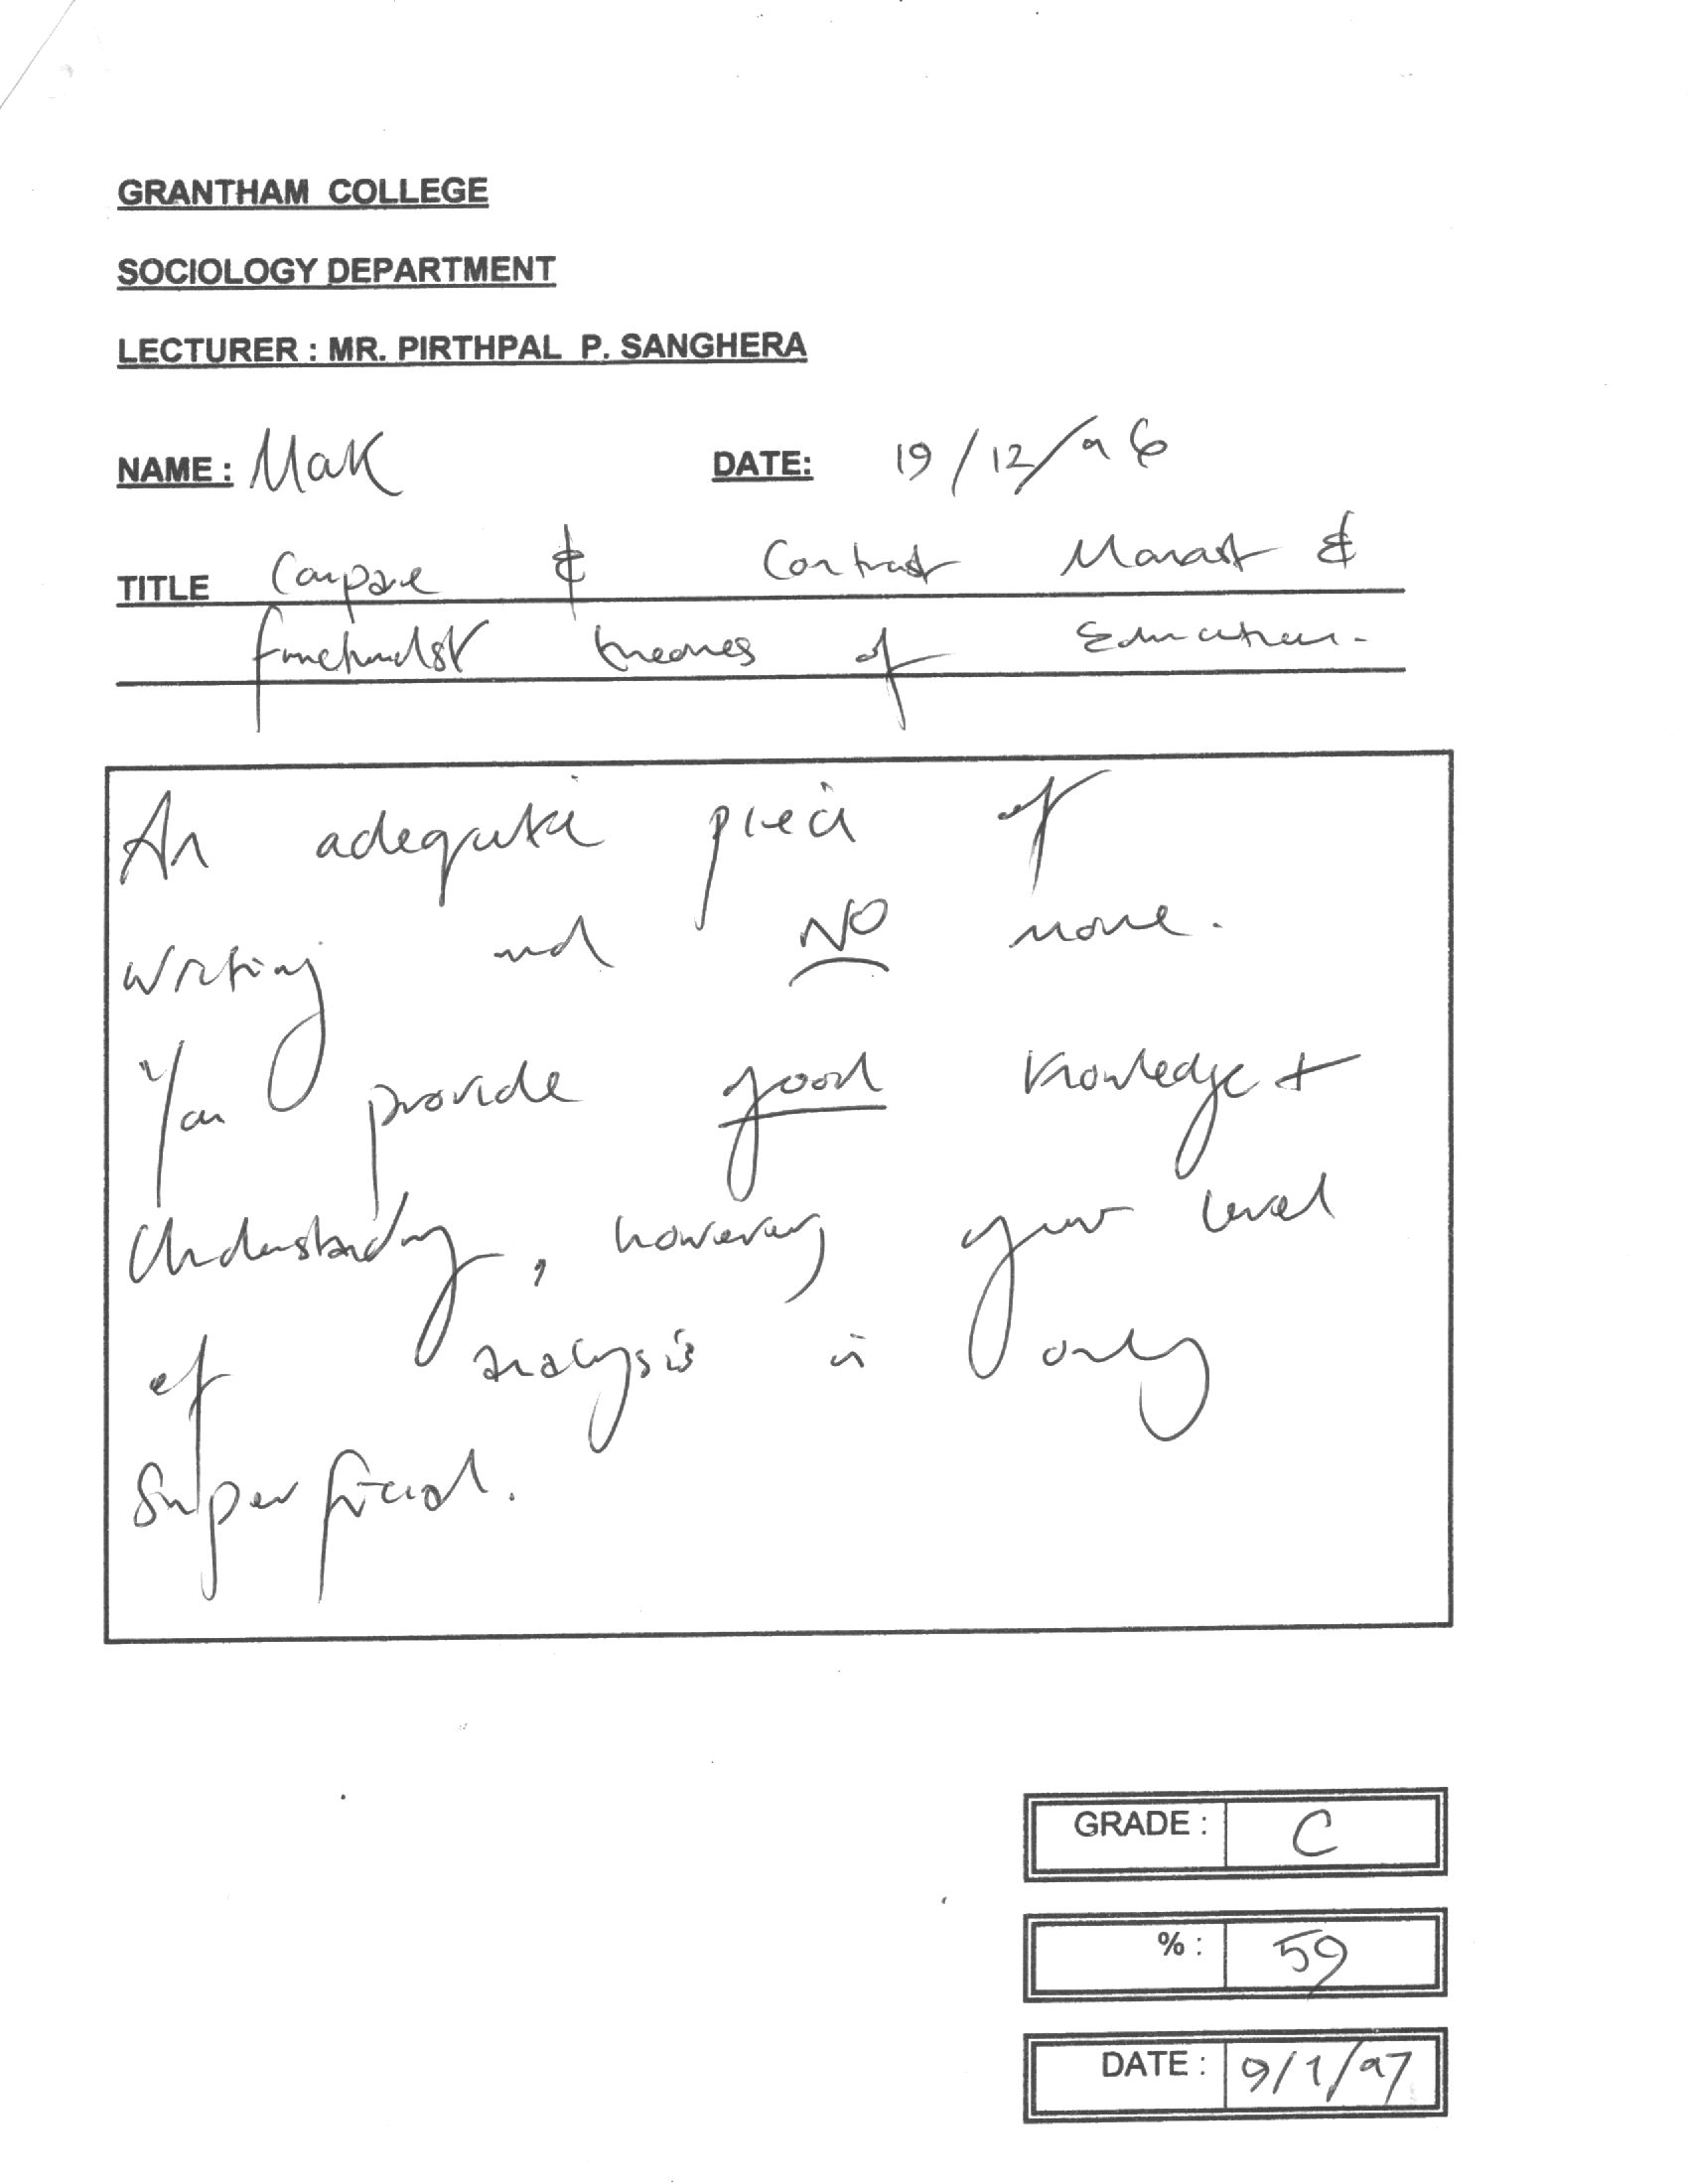 GRANTHAM COLLEGE
SOCIOLOGY DEPARTMENT
LECTURER : MR. PIRTHPAL P. SANGHERA
NAME : Mak DATE: 19/12/96
TITLE Compare & Contrast Marxist &
functionalist theories of Education.
An adequate piece of
writing and NO more.
You provide good knowledge +
Understanding, however your level
of analysis is only
Superficial.
GRADE : C
% : 59
DATE : 9/1/97